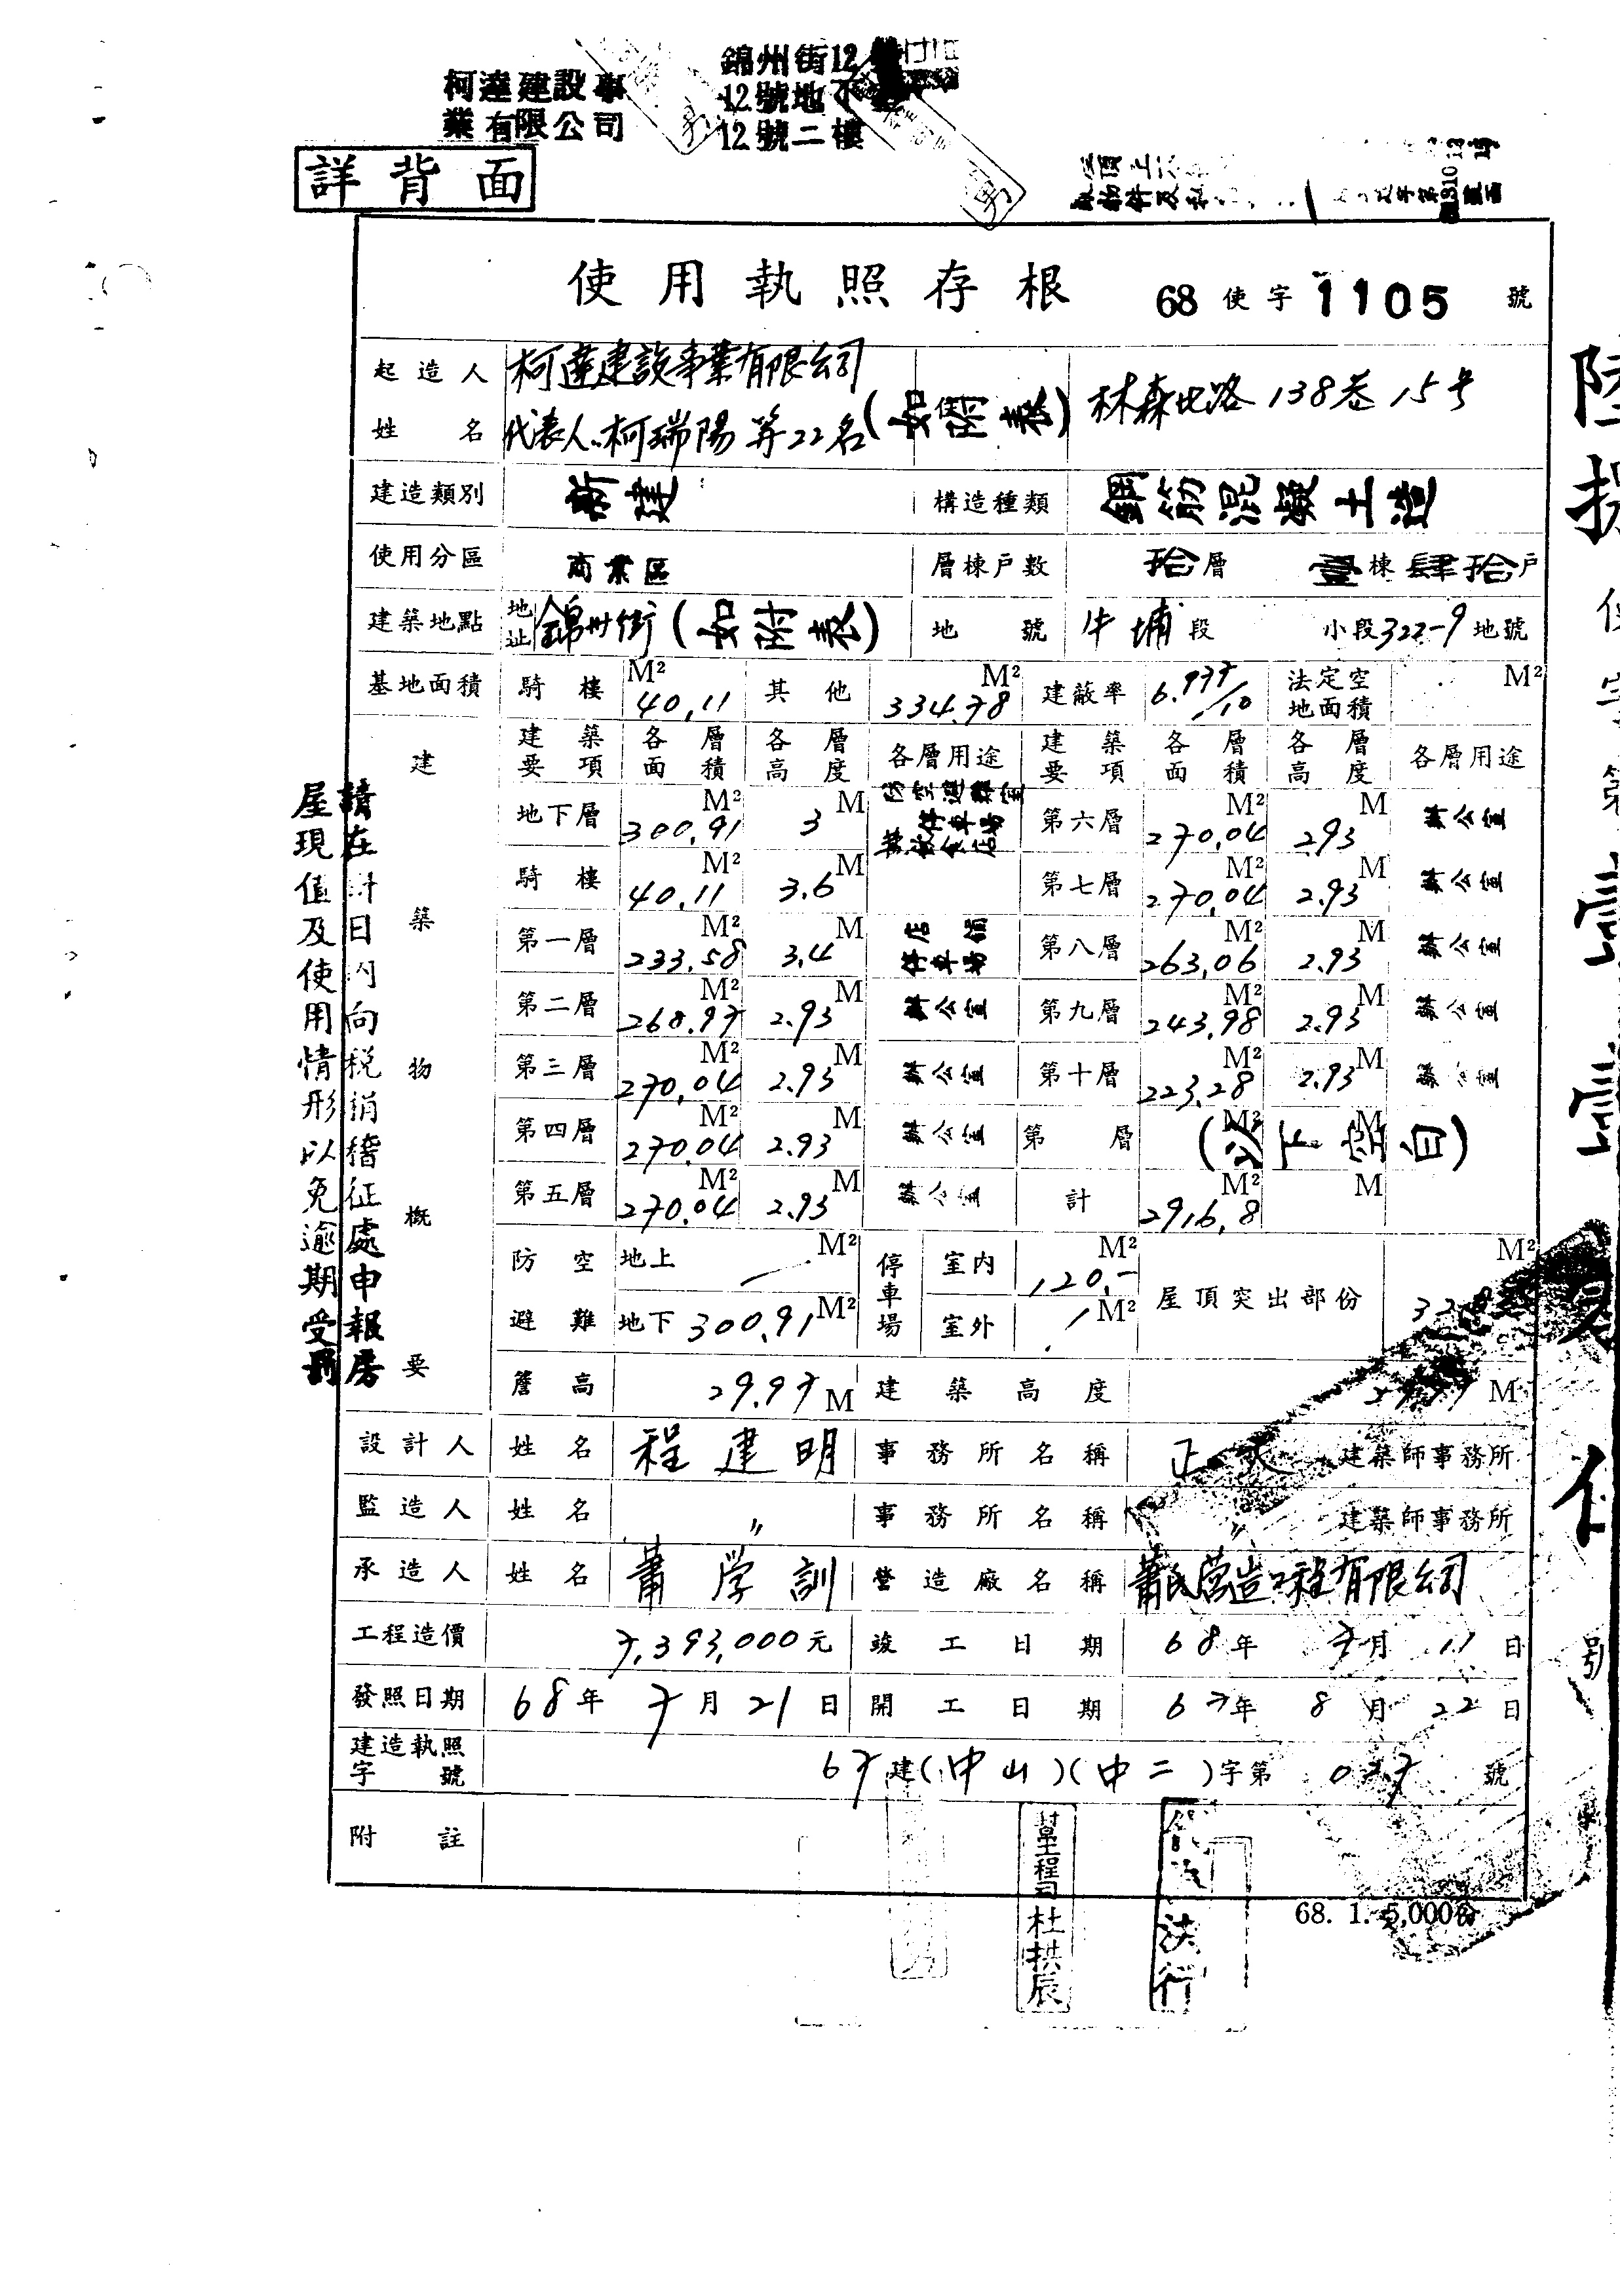 柯達建設事
業有限公司
錦州街12
12號地下
12號二樓
詳背面
使用執照存根 68使字1105號
起造人姓名 柯達建設事業有限公司
代表人:柯瑞陽等22名(如附表) 住址 林森北路138巷15號
建造類別 新建 構造種類 鋼筋混凝土造
使用分區 商業區 層棟戶數 拾層 壹棟肆拾戶
建築地點 地址 錦州街(如附表) 地號 牛埔段 小段322-9地號
基地面積 騎樓 M² 40.11 其他 M² 334.78 建蔽率 法定空地面積 M²
建築物概要
建築要項 各層面積 各層高度 各層用途 建築要項 各層面積 各層高度 各層用途
地下層 M² 300.91 M 3 防空避難室 停車場 第六層 M² 270.04 M 2.93 辦公室
騎樓 M² 40.11 M 3.6 第七層 M² 270.04 M 2.93 辦公室
第一層 M² 233.58 M 3.4 店舖 停車場 第八層 M² 263.06 M 2.93 辦公室
第二層 M² 268.97 M 2.93 辦公室 第九層 M² 243.98 M 2.93 辦公室
第三層 M² 270.04 M 2.93 辦公室 第十層 M² 223.28 M 2.93 辦公室
第四層 M² 270.04 M 2.93 辦公室 第 層 M² M (以下空白)
第五層 M² 270.04 M 2.93 辦公室 計 M² 2916.8 M
防空避難 地上 M² 停車場 室內 M² 120.- 屋頂突出部份 M²
地下 300.91 M² 室外 / M²
簷高 29.97 M 建築高度 29.97 M
設計人 姓名 程建明 事務所名稱 正大 建築師事務所
監造人 姓名 〃 事務所名稱 〃 建築師事務所
承造人 姓名 蕭学訓 營造廠名稱 蕭氏營造工程有限公司
工程造價 7,393,000元 竣工日期 68年7月11日
發照日期 68年7月21日 開工日期 67年8月22日
建造執照字號 67建(中山)(中二)字第027號
附註
68. 1. 5,000份
請在 日內向稅捐稽征處申報房
屋現值及使用情形以免逾期受罰
工程司杜拱辰
決行